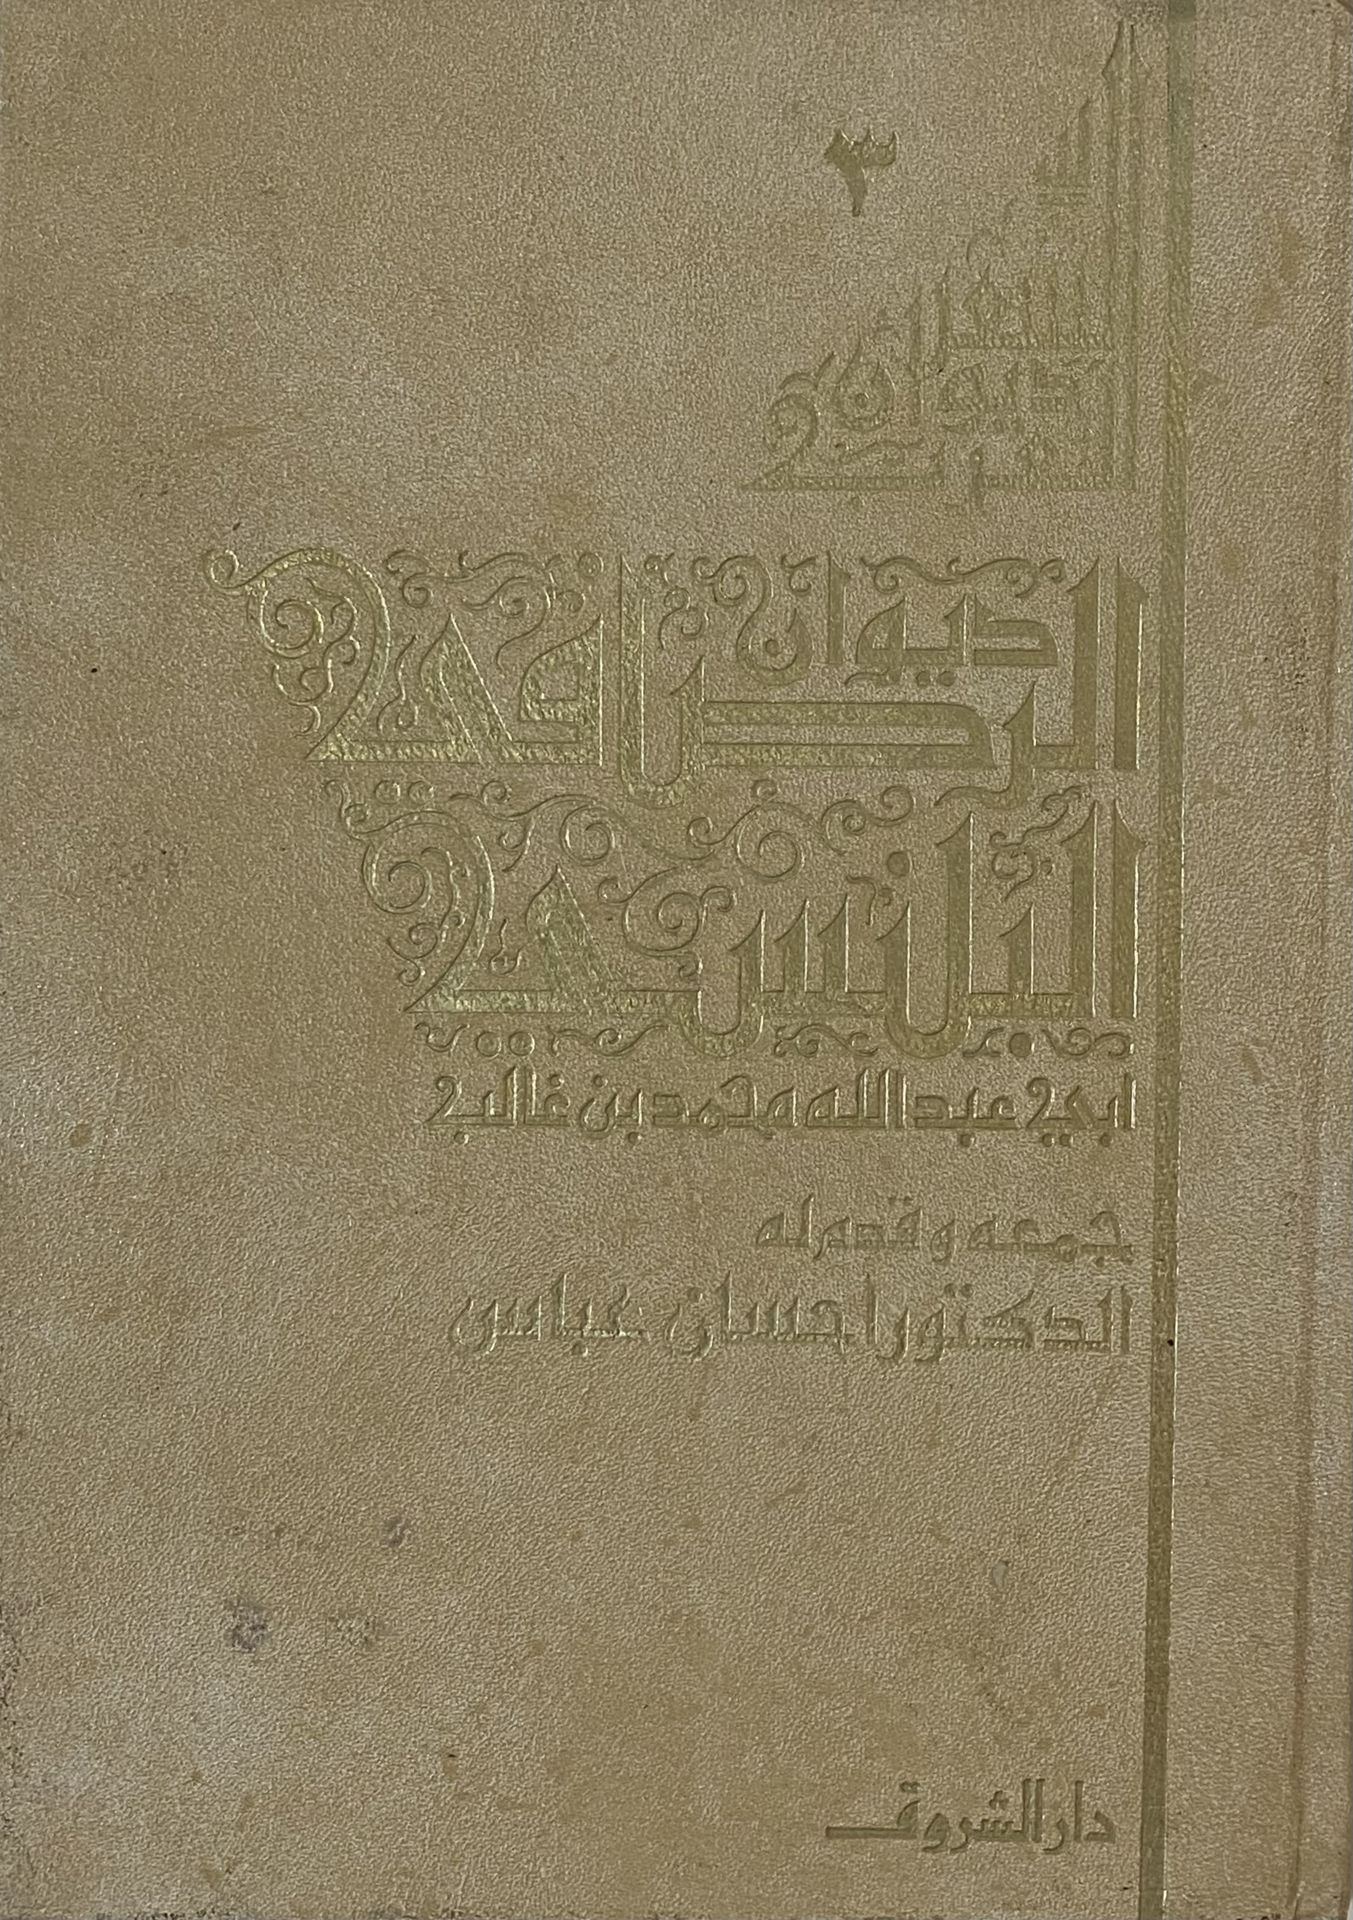 ٣
ديوان
ديوان
الرصافي
البلنسي
ابي عبدالله محمد بن غالب
جمعه وقدم له
الدكتور احسان عباس
دار الشروق